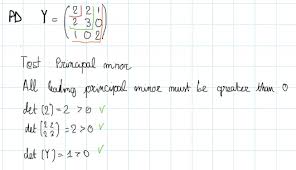 PD Y = (2 2 1
2 3 0
1 0 2)
Test Principal minor
All leading principal minor must be greater than 0
det (2) = 2 > 0 ✓
det (2 2
2 3) = 2 > 0 ✓
det (Y) = 1 > 0 ✓